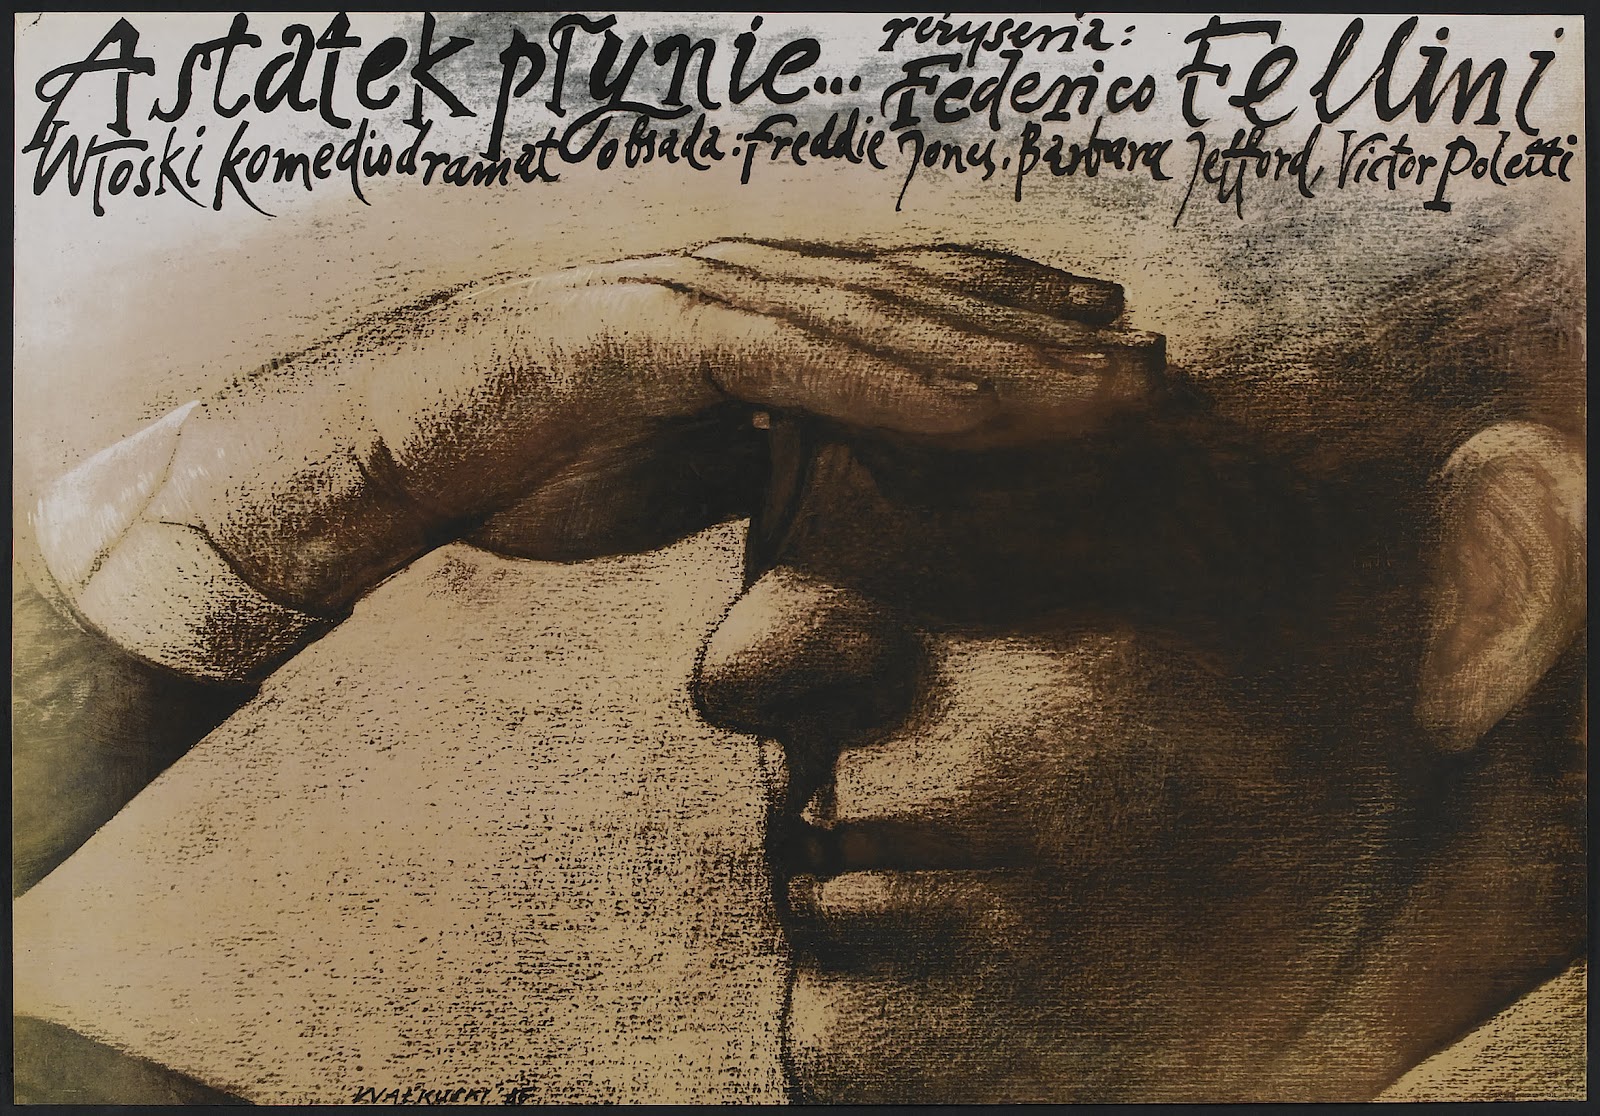 A statek płynie...
reżyseria:
Federico Fellini
Włoski komediodramat obsada: Freddie Jones, Barbara Jefford, Victor Poletti
WAŁKUSKI '86